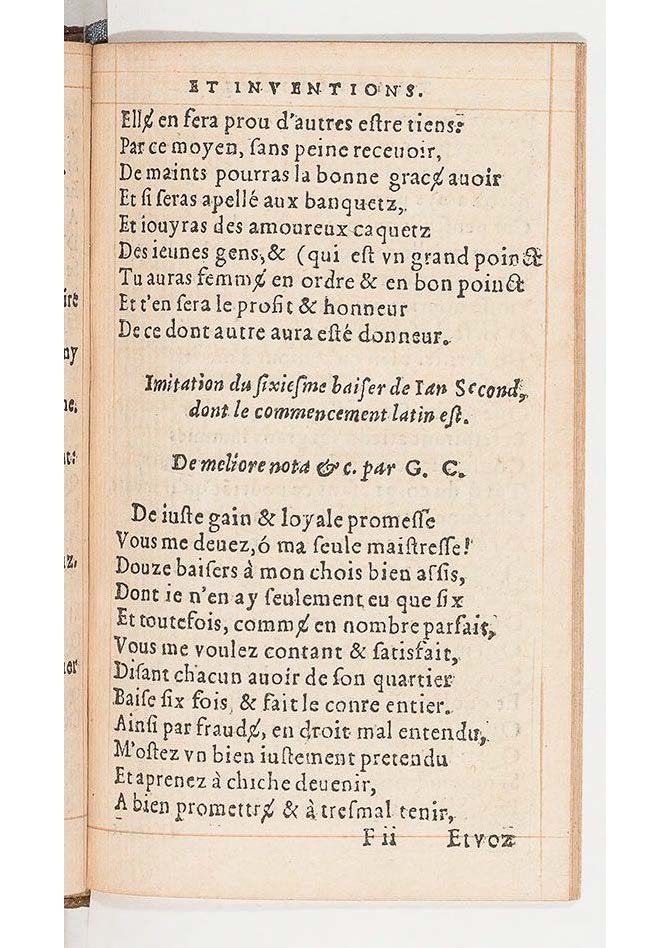 ET INVENTIONS.
Ellɇ en ſera prou d'autres eſtre tiens:
Par ce moyen, ſans peine receuoir,
De maints pourras la bonne gracɇ auoir
Et ſi ſeras apellé aux banquetz,
Et iouyras des amoureux caquetz
Des ieunes gens, & (qui eſt vn grand poinct
Tu auras femmɇ en ordre & en bon poinct
Et t'en ſera le profit & honneur
De ce dont autre aura eſté donneur.
Imitation du ſixieſme baiſer de Ian Second,
dont le commencement latin eſt.
De meliore nota & c. par G. C.
De iuſte gain & loyale promeſſe
Vous me deuez, ó ma ſeule maiſtreſſe!
Douze baiſers à mon chois bien aſsis,
Dont ie n'en ay ſeulement eu que ſix
Et toutefois, commɇ en nombre parfait,
Vous me voulez contant & ſatisfait,
Diſant chacun auoir de ſon quartier
Baiſe ſix fois, & fait le conre entier.
Ainſi par fraudɇ, en droit mal entendu,
M'oſtez vn bien iuſtement pretendu
Et aprenez à chiche deuenir,
A bien promettrɇ & à treſmal tenir,
F ii Et voz